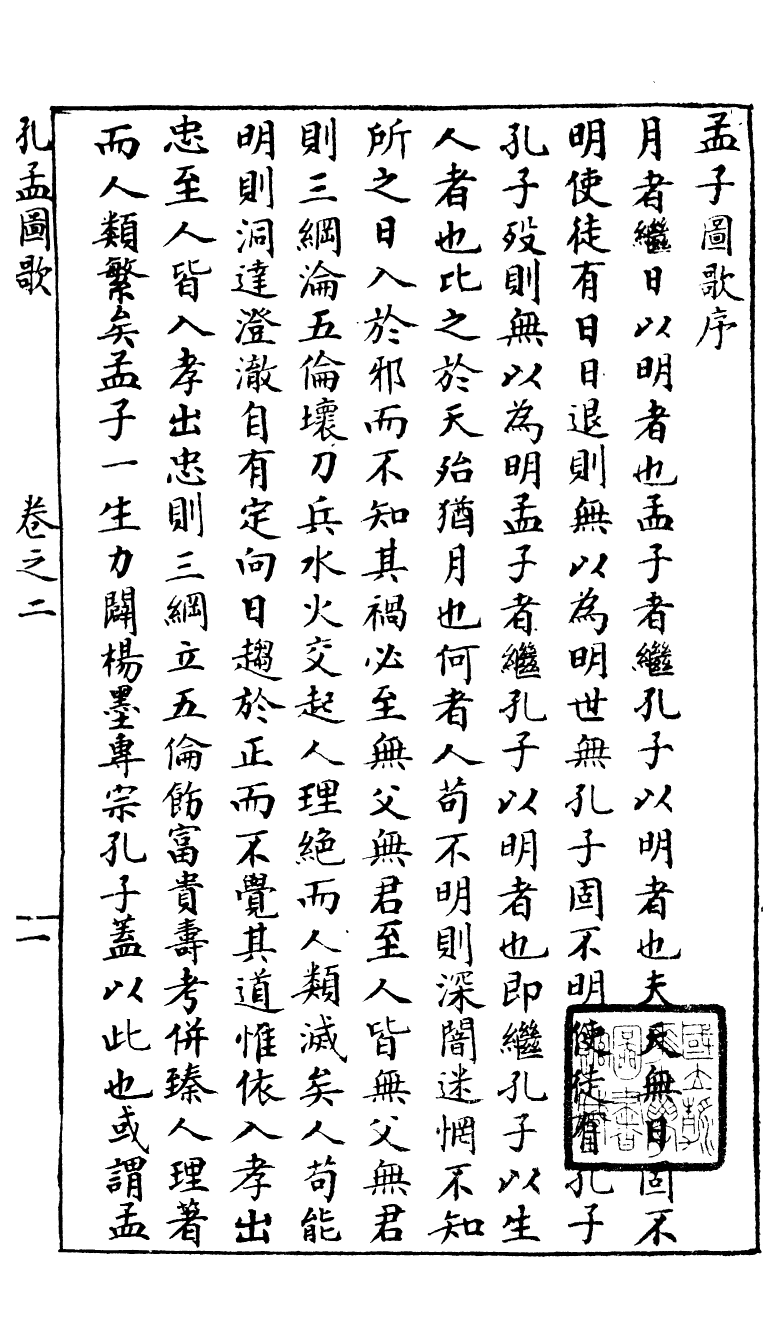 孟子圖歌序
月者繼日以明者也孟子者繼孔子以明者也夫天無日固不
明使徒有日日退則無以為明世無孔子固不明使徒有孔子
孔子歿則無以為明孟子者繼孔子以明者也即繼孔子以生
人者也比之於天殆猶月也何者人苟不明則深闇迷惘不知
所之日入於邪而不知其禍必至無父無君至人皆無父無君
則三綱淪五倫壞刀兵水火交起人理絕而人類滅矣人苟能
明則洞達澄澈自有定向日趨於正而不覺其道惟依入孝出
忠至人皆入孝出忠則三綱立五倫飭富貴壽考併臻人理著
而人類繁矣孟子一生力闢楊墨專宗孔子蓋以此也或謂孟
孔孟圖歌
卷之二
一